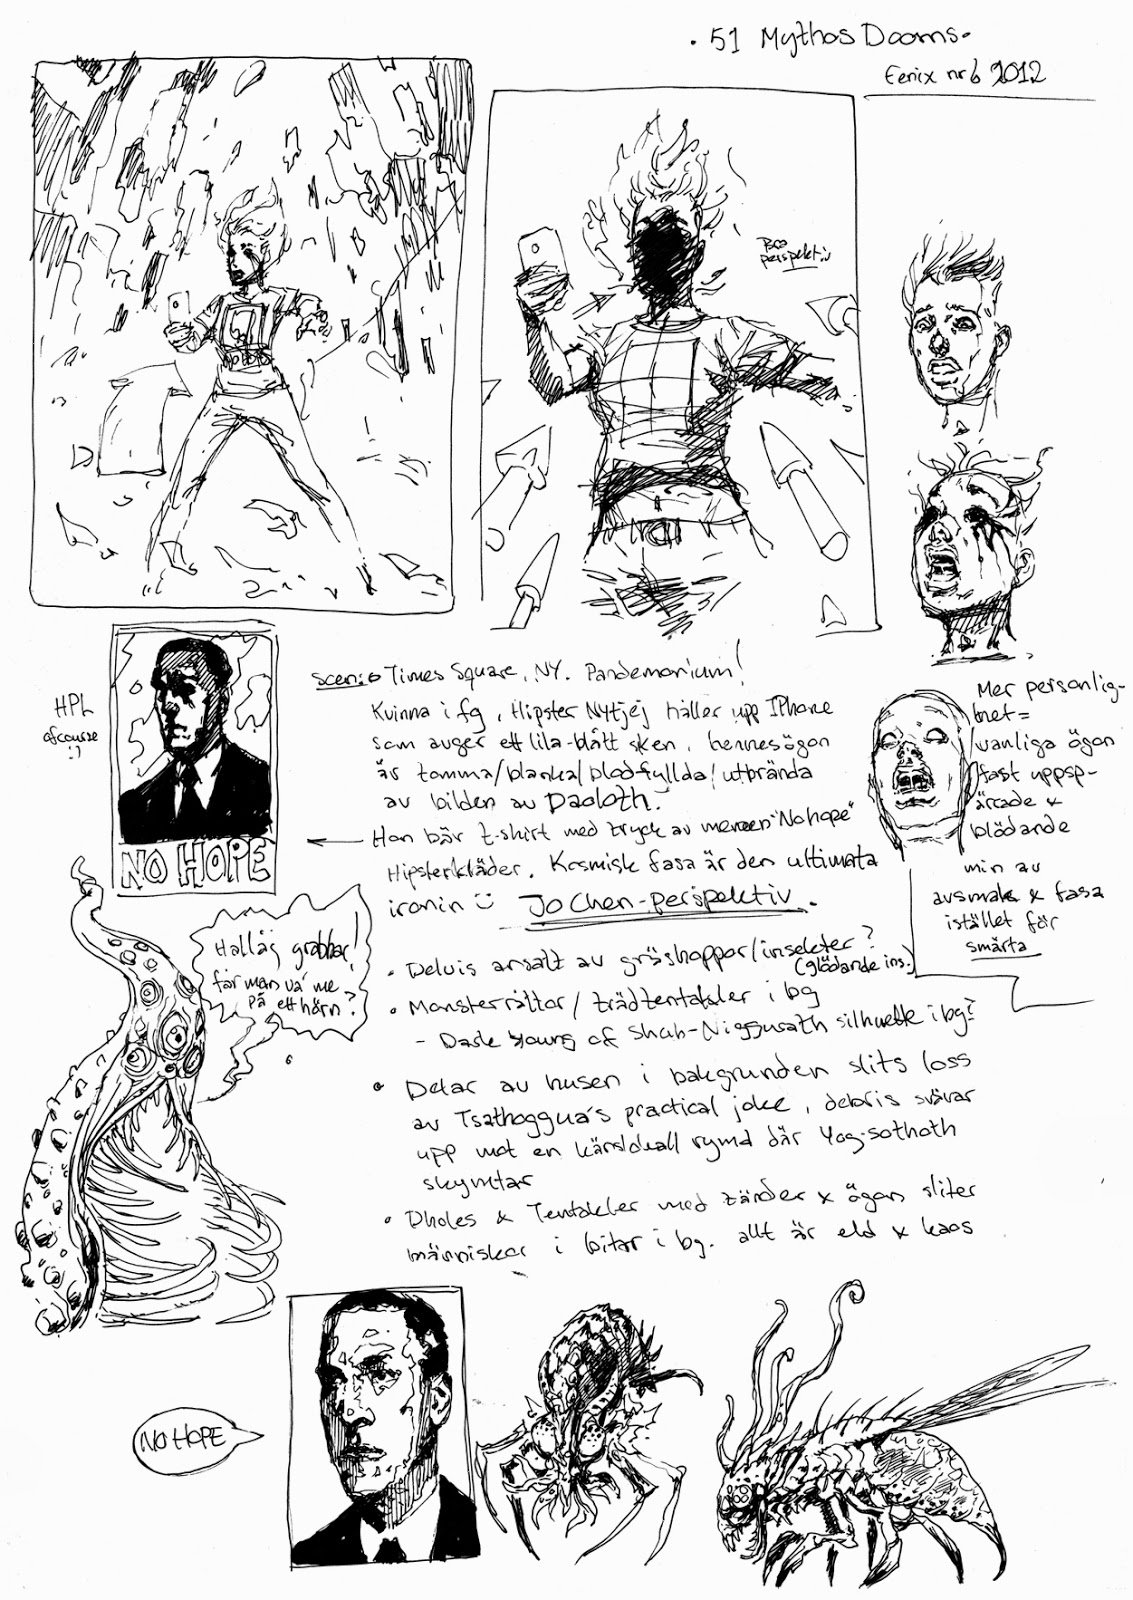 · 51 Mythos Dooms ·
Fenix nr 6 2012
Bra
perspektiv
HPL
ofcourse
:)
NO HOPE
Scen: Times Square, NY. Pandemonium!
Kvinna i fg, Hipster NYtjej håller upp IPhone
som avger ett lila-blått sken, hennes ögon
är tomma/blanka/blodfyllda/utbrända
av bilden av Daoloth.
Hon bär t-shirt med tryck av memen "No hope"
Hipsterkläder. Kosmisk fasa är den ultimata
ironin :)
Jo Chen-perspektiv.
Mer personlig-
het =
vanliga ögon
fast uppsp-
ärrade &
blödande
min av
avsmak & fasa
istället för
smärta
Hallåj grabbar!
får man va' me
på ett hörn?
• Delvis ansatt av gräshoppor/insekter?
(glödande ins.)
• Monsterråttor/trädtentakler i bg
- Dark Young of Shub-Niggurath silhuett i bg?
• Delar av husen i bakgrunden slits loss
av Tsathoggua's practical joke, debris svävar
upp mot en kärsldeall rymd där Yog-Sothoth
skymtar
• Dholes & Tentakler med tänder & ögon sliter
människor i bitar i bg. allt är eld & kaos
NO HOPE